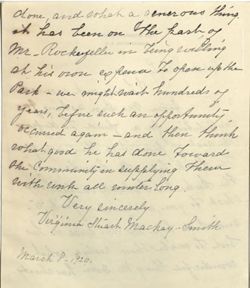 done, and what a generous thing
it has been on the part of
Mr. Rockefeller in being willing
at his own expense to open up the
Park - we might wait hundreds of
years, before such an opportunity
occurred again - and then think
what good he has done toward
the Community in supplying them
with work all winter long.
Very sincerely
Virginia Stuart Mackay-Smith
March 8-1920.